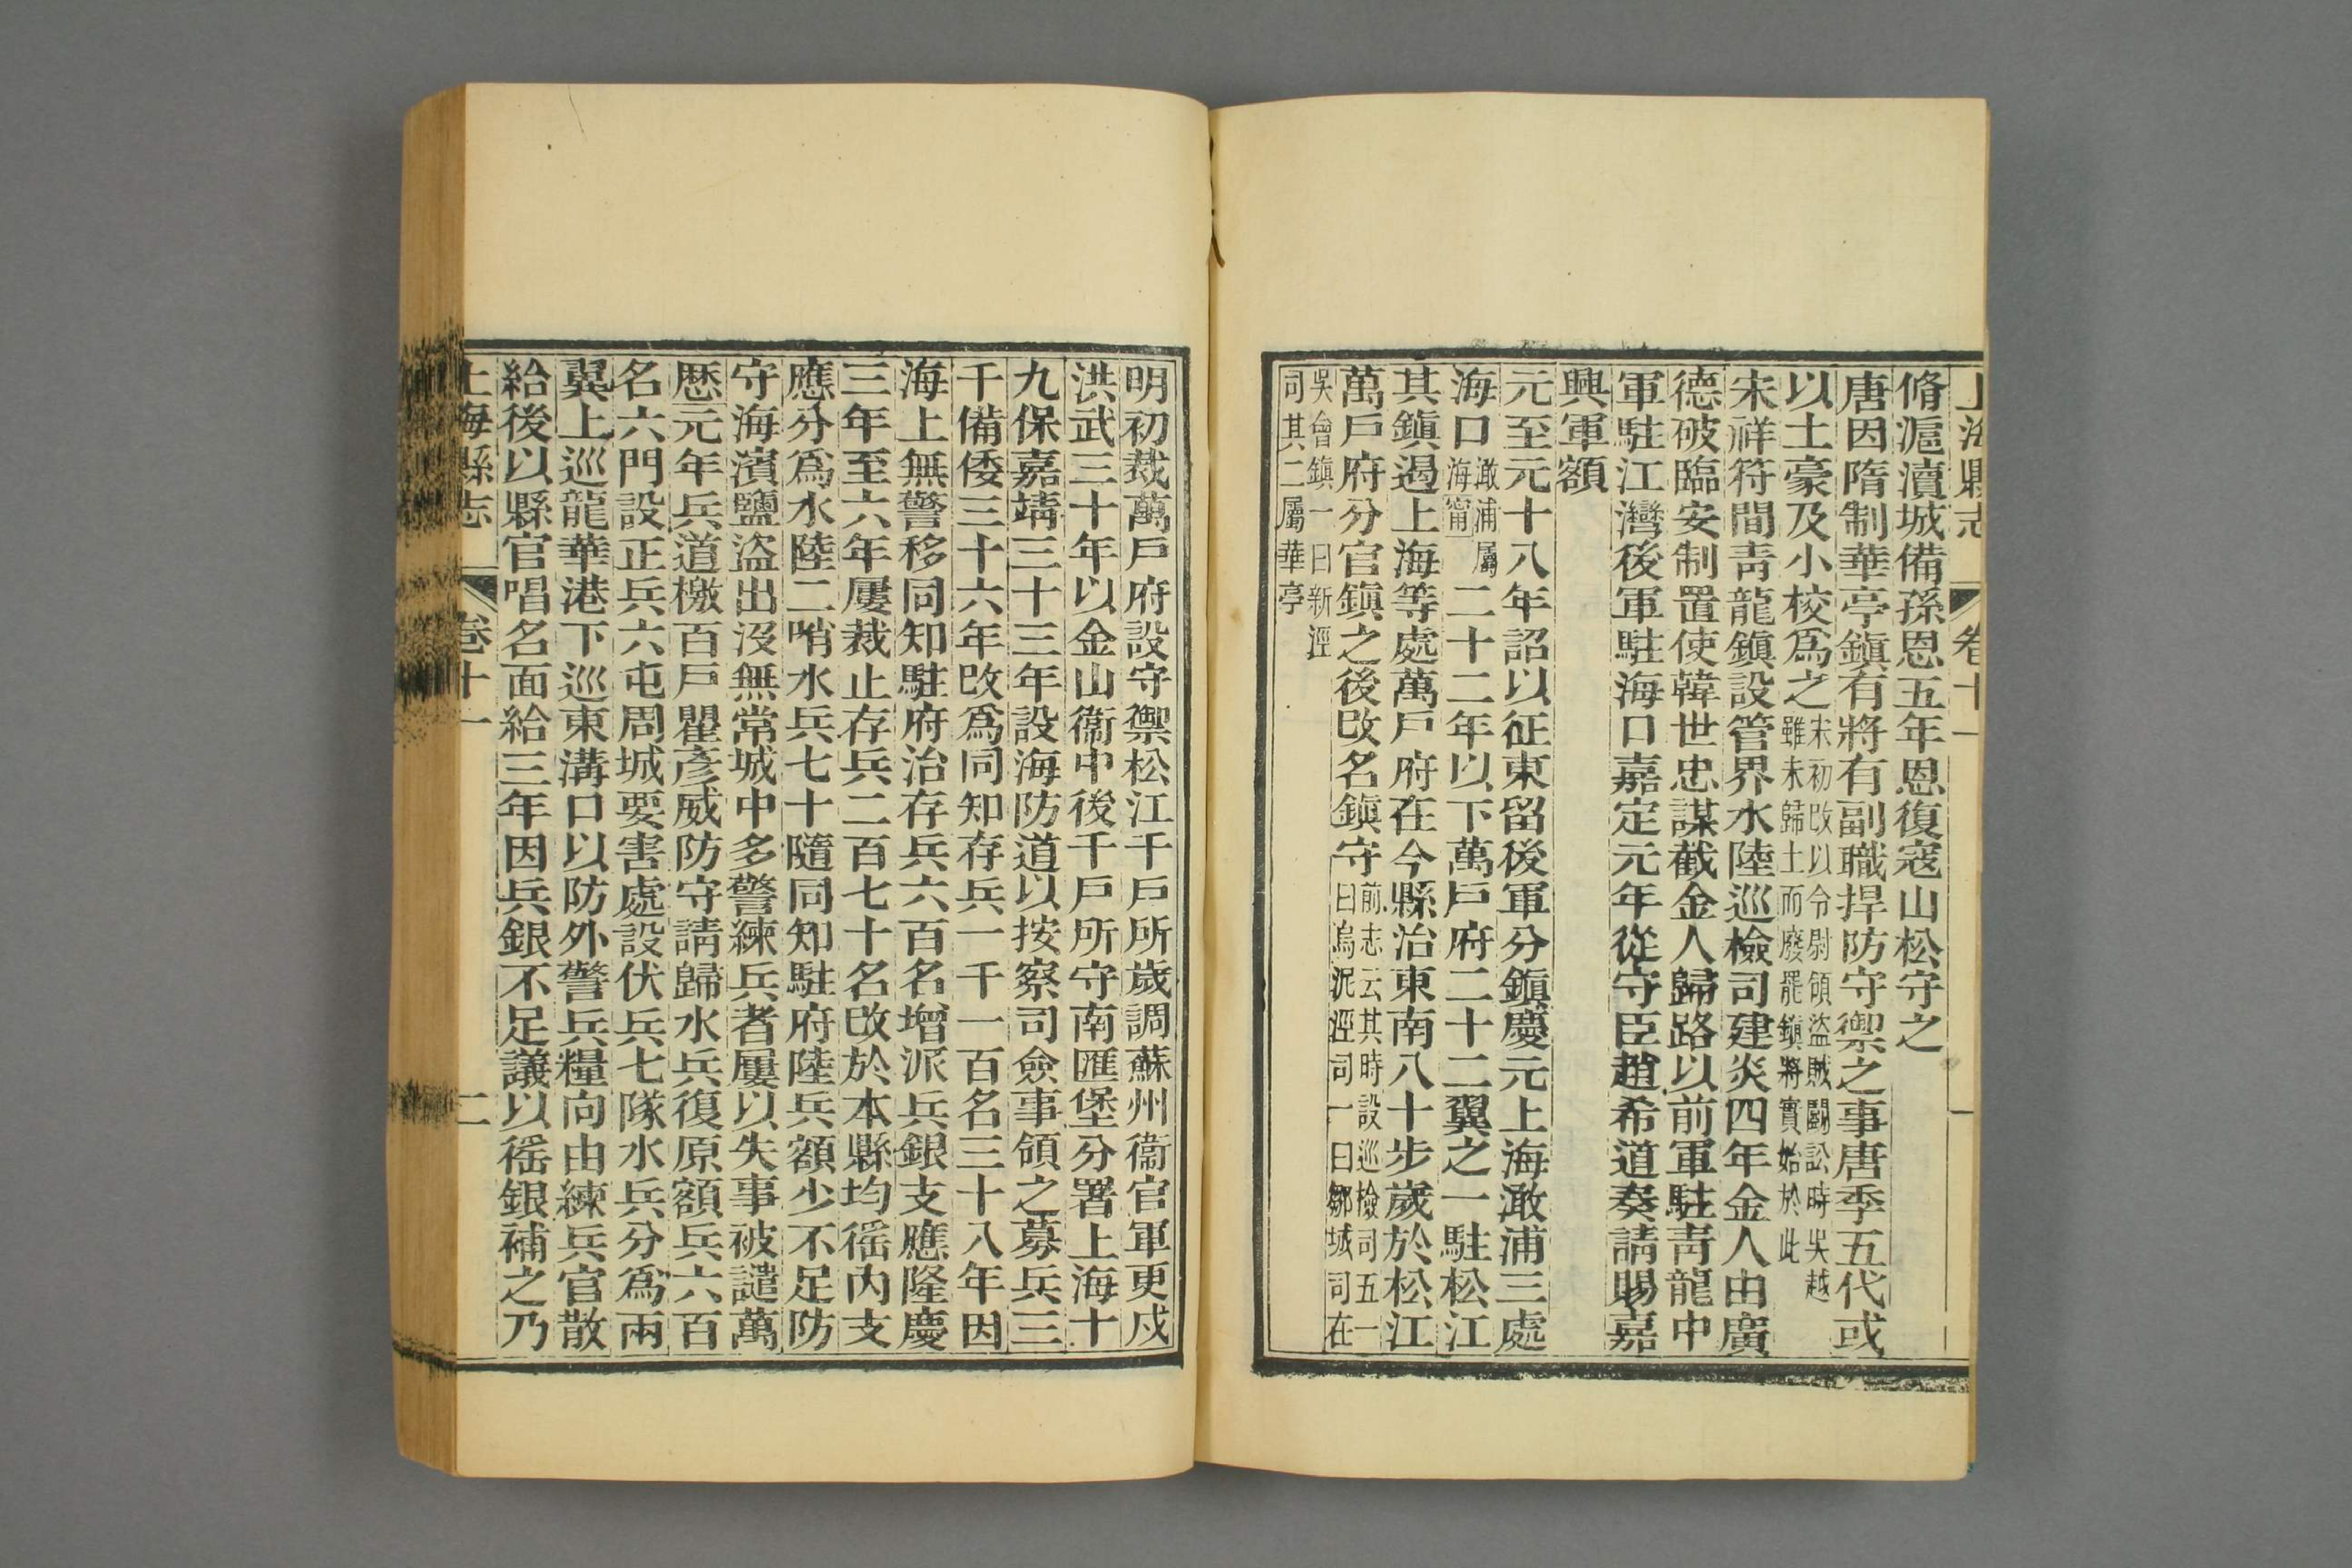 上海縣志 卷十一 一
脩滬瀆城備孫恩五年恩復寇山松守之
唐因隋制華亭鎭有將有副職捍防守禦之事唐季五代或
以土豪及小校爲之
宋初改以令尉領盜賊鬭訟時吳越
雖未歸土而廢罷鎭將實始於此
宋祥符間靑龍鎭設管界水陸巡檢司建炎四年金人由廣
德破臨安制置使韓世忠謀截金人歸路以前軍駐靑龍中
軍駐江灣後軍駐海口嘉定元年從守臣趙希道奏請賜嘉
興軍額
元至元十八年詔以征東留後軍分鎭慶元上海澉浦三處
海口
澉浦屬
海甯
二十二年以下萬戶府二十二翼之一駐松江
其鎭過上海等處萬戶府在今縣治東南八十步歲於松江
萬戶府分官鎭之後改名鎭守
前志云其時設巡檢司五一
曰烏泥涇司一曰鄒城司在
吳會鎭一曰新涇
司其二屬華亭
明初裁萬戶府設守禦松江千戶所歲調蘇州衞官軍更戍
洪武三十年以金山衞中後千戶所守南匯堡分署上海十
九保嘉靖三十三年設海防道以按察司僉事領之募兵三
千備倭三十六年改爲同知存兵一千一百名三十八年因
海上無警移同知駐府治存兵六百名增派兵銀支應隆慶
三年至六年屢裁止存兵二百七十名改於本縣均徭內支
應分爲水陸二哨水兵七十隨同知駐府陸兵額少不足防
守海濱鹽盜出沒無常城中多警練兵者屢以失事被譴萬
歷元年兵道檄百戶瞿彥威防守請歸水兵復原額兵六百
名六門設正兵六屯周城要害處設伏兵七隊水兵分爲兩
翼上巡龍華港下巡東溝口以防外警兵糧向由練兵官散
給後以縣官唱名面給三年因兵銀不足議以徭銀補之乃
上海縣志 卷十一 二